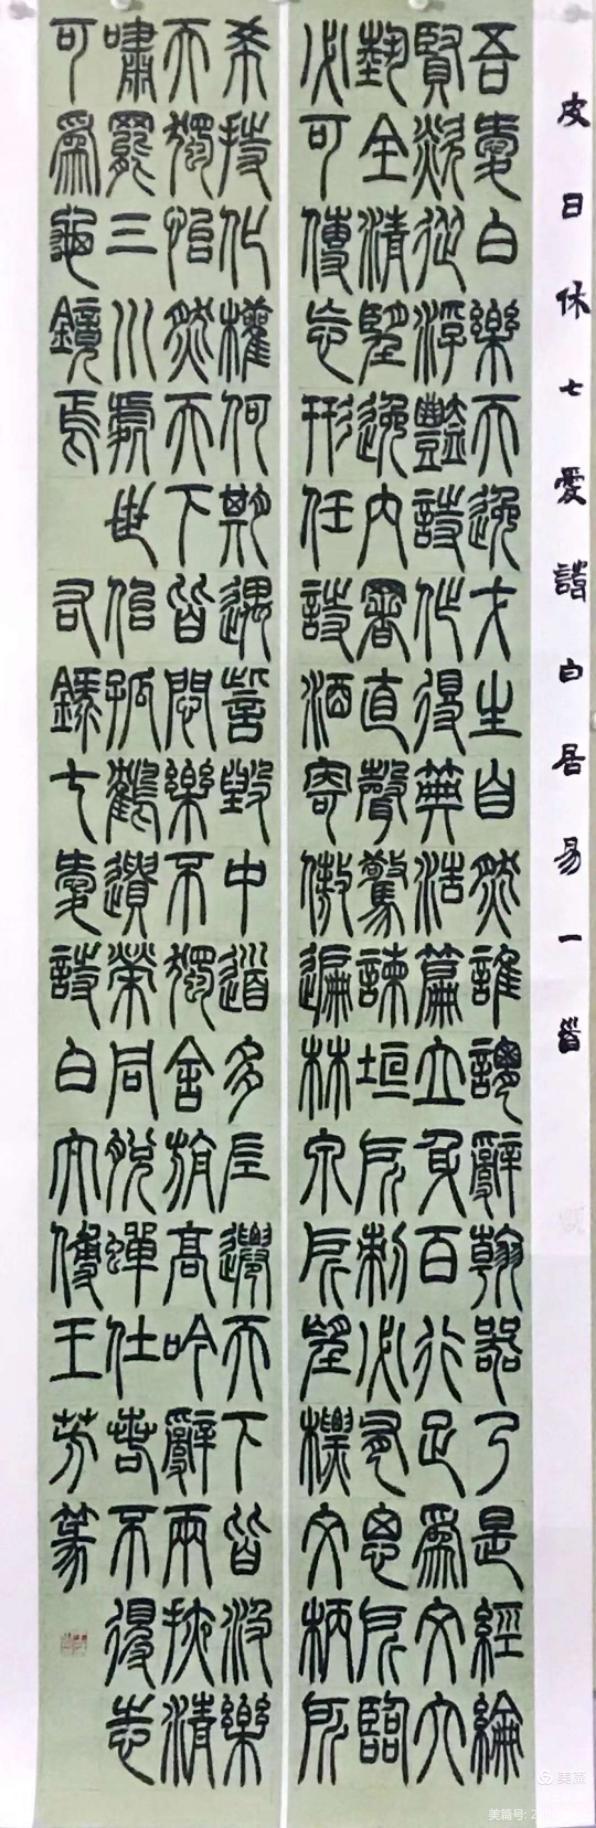 皮日休七愛詩白居易一首
吾愛白樂天逸才生自然誰謂辭翰器乃是經綸
賢欻從浮豔詩作得浩篇立身百行足爲文六
藝全清望逸內署直聲驚諫垣所刺必有思所臨
必可傳忘形任詩酒寄傲遍林泉所望標文柄所
希持化權何期遇訾毀中道多左遷天下皆汲樂
天獨怡然天下皆悶樂天獨舍旃高吟辭兩掖清
嘯罷三川處世似孤鶴遺榮同脫蟬仕若不得志
可爲龜鏡焉 右錄七愛詩白太傅王芳篆
美篇
美篇号: 2